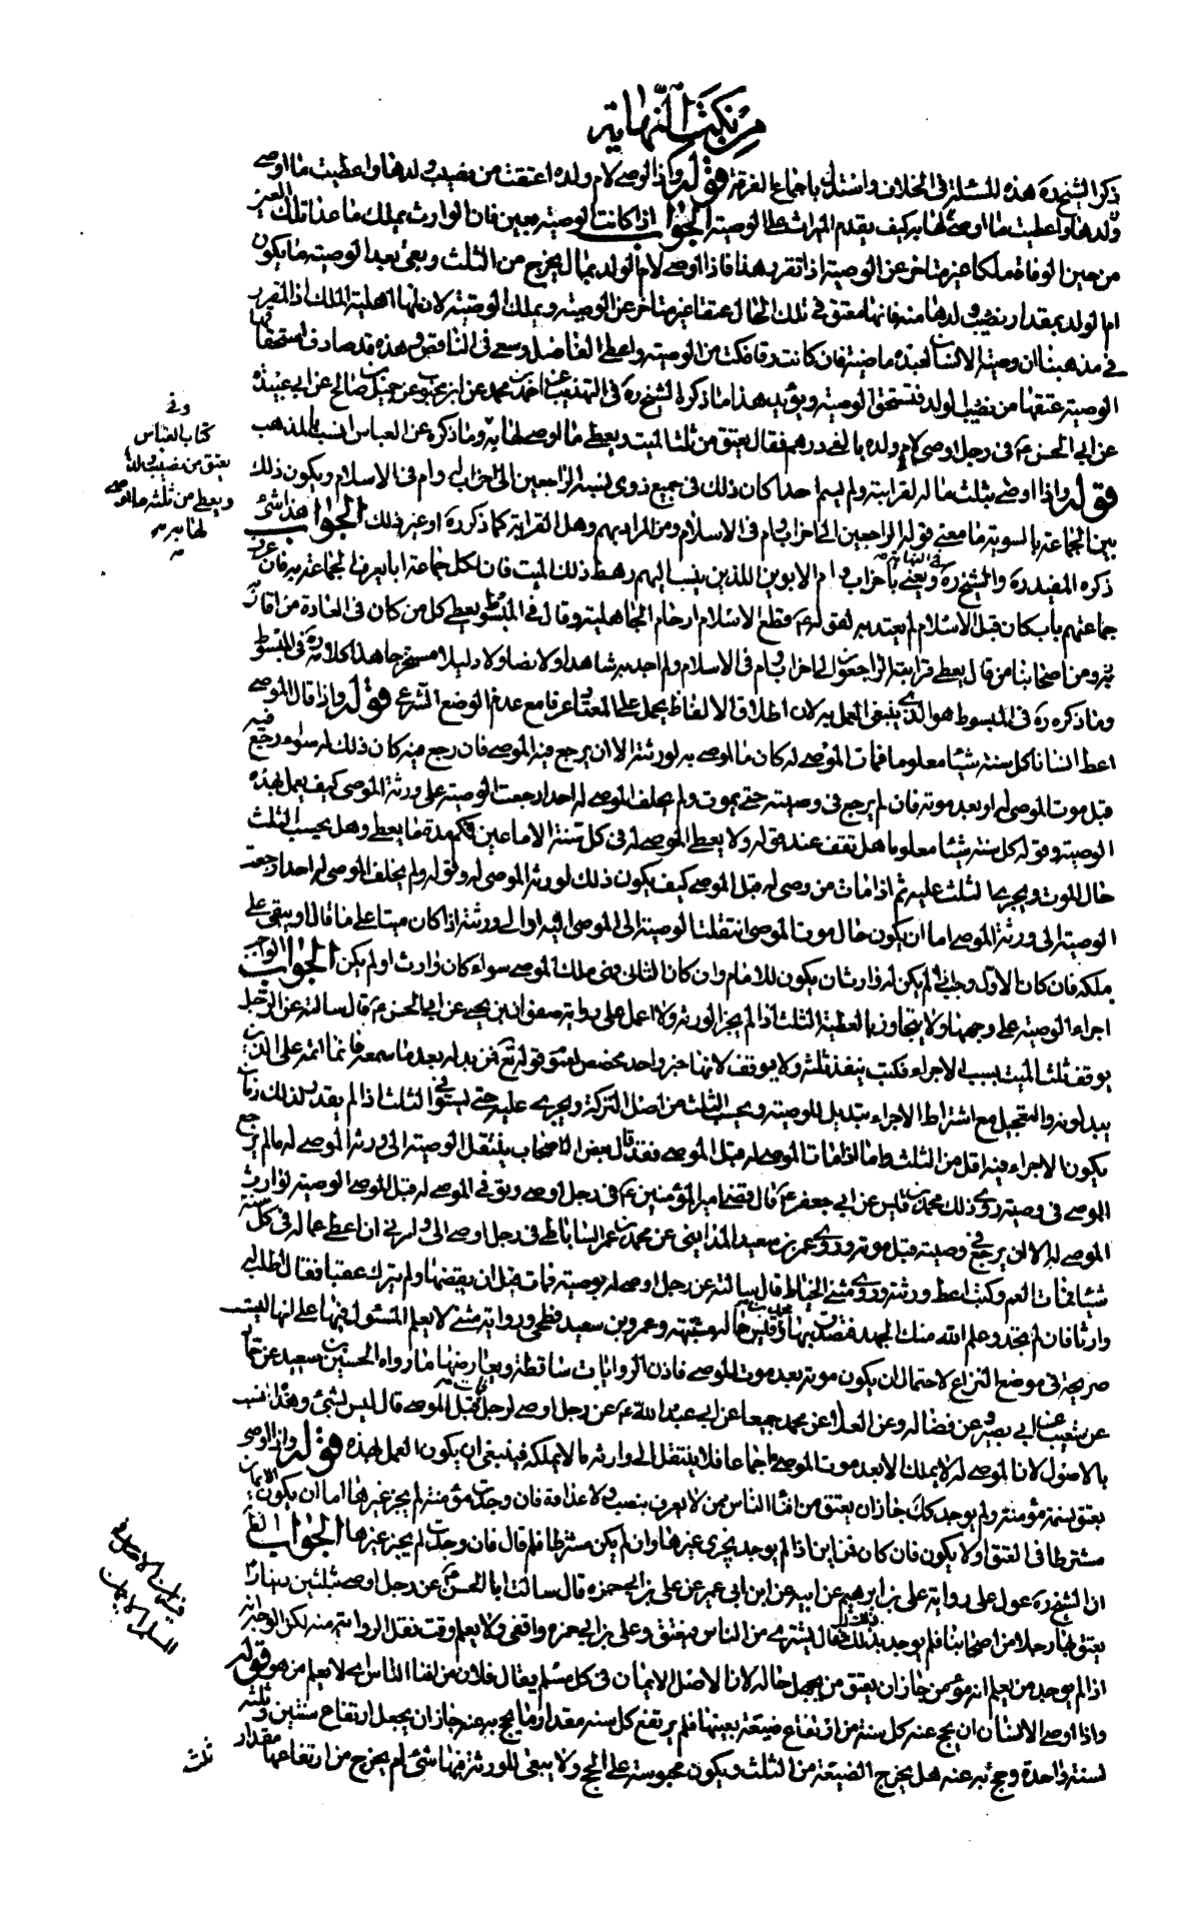 من نكت النهاية
ذكر الشيخ ره هذه المسئلة في الخلاف واستدل باجماع الفرقة قوله واذا اوصى لام ولده اعتقت من نصيب ولدها واعطيت ما اوصى
ولدها واعطيت ما اوصى لها به كيف يقدم الميراث على الوصية الجواب اذا كانت الوصية بعين فان الوارث يملك ما عدا تلك العين
من حين الوفاة ملكا غير متاخر عن الوصية اذا تقرر هذا فاذا اوصى لام الولد بمال يخرج من الثلث وبقى بعد الوصية ما يكون
ام الولد بمقدار نصيب ولدها منه فانها تعتق في تلك الحال عتقا غير متاخر عن الوصية ويملك الوصية لان لها اهلية الملك اذ المقرر
في مذهبنا ان وصية الانسان لعبده ماضية فان كانت وفا فكت من الوصية واعطى الفاضل وسعى في الناقص وهذه قد صادف استحقاقها
الوصية عتقها من نصيب الولد فتستحق الوصية ويؤيد هذا ما ذكر الشيخ ره في التهذيب عن احمد بن محمد عن ابن محبوب عن جميل بن صالح عن ابي عبيدة
عن ابي الحسن ع في رجل اوصى لام ولده بالفي درهم فقال يعتق من ثلث الميت ويعطى ما اوصى لها به وما ذكره عن العباس انسب بالمذهب
قوله واذا اوصى بثلث ماله لقرابته ولم يسم احدا كان ذلك في جميع ذوي نسبه الراجعين الى اخر اب وام في الاسلام ويكون ذلك
بين الجماعة بالسوية ما معنى قوله الراجعين الى اخر اب وام في الاسلام ومن المراد بهم وهل القرابة كما ذكر ره او غير ذلك الجواب هذا شئ
ذكره المفيد ره والشيخ ره في النهاية ويعني باخر اب وام الابوين اللذين ينسب اليهم رهط ذلك الميت فان لكل جماعة ابا يعرف الجماعة به فان عرف
جماعتهم باب كان قبل الاسلام لم يعتد به لقوله ع قطع الاسلام ارحام الجاهلية وقال في المبسوط يعطى كل من كان في العادة من اقاربه
ومن اصحابنا من قال يعطى قرابته الراجعون الى اخر اب وام في الاسلام ولم اجد به شاهدا ولا نصا ولا دليلا مستخرجا هذا كلامه ره في المبسوط
وما ذكره ره في المبسوط هو الذي ينبغي العمل به لان اطلاق الالفاظ يحمل على المعتاد عرفا مع عدم الوضع الشرعي قوله واذا قال الموصى
اعط انسانا كل سنة شيئا معلوما فمات الموصى له كان ما اوصى به لورثته الا ان يرجع فيه الموصى فان رجع فيه كان ذلك له سواء رجع فيه
قبل موت الموصى له او بعد موته فان لم يرجع في وصيته حتى يموت ولم يخلف الموصى له احدا رجعت الوصية على ورثة الموصى كيف يعمل بهذه
الوصية وقوله كل سنة شيئا معلوما هل تقف عند قوله ولا يعطى الموصى له في كل سنة الا ما عين فكم مدة ما يعطى وهل يحسب الثلث
حال الموت ويجري الثلث عليه ثم اذا مات من وصى له قبل الموصى كيف يكون ذلك لورثة الموصى له وقوله ولم يخلف الموصى له احدا رجعت
الوصية الى ورثة الموصى اما ان يكون حال موت الموصى انتقلت الوصية الى الموصى اليه او الى ورثته اذا كان ميتا على ما قال او يبقى على
ملكه فان كان الاول وجب اذا لم يكن له وارث ان يكون للامام وان كان الثاني فهي ملك الموصى سواء كان وارث او لم يكن الجواب الواجب
اجراء الوصية على وجهها ولا يتجاوز بالعطية الثلث اذا لم يجز الورثة ولا اعمل على رواية صفوان بن يحيى عن ابي الحسن ع قال سالته عن الرجل
يوقف ثلث الميت بسبب الاجراء فكتب ينفذ ثلثه ولا يوقف لانها خبر واحد مخصص لعموم قوله تع فمن بدله بعد ما سمعه فانما اثمه على الذين
يبدلونه والتعجيل مع اشتراط الاجراء تبديل للوصية ويحسب الثلث من اصل التركة ويجري عليه حتى يستوفي الثلث اذا لم يقدر لذلك زمان
يكون الاجراء فيه اقل من الثلث واما اذا مات الموصى له قبل الموصى فقد قال بعض الاصحاب ينتقل الوصية الى ورثة الموصى له ما لم يرجع
الموصى في وصيته روى ذلك محمد بن قيس عن ابي جعفر ع قال قضى امير المؤمنين ع في رجل اوصى وتوفي الموصى له قبل الموصى الوصية لوارث
الموصى له الا ان يرجع في وصيته قبل موته وروى عمرو بن سعيد المدايني عن محمد بن عمر الساباطي في رجل اوصى الى وامرني ان اعطي عما له في كل سنة
شيئا فمات العم فكتب اعط ورثته وروى مثنى الحناط قال سالته عن رجل اوصى له بوصية فمات قبل ان يقبضها ولم يترك عقبا فقال اطلب له
وارثا فان لم تجد وعلم الله منك الجهد فتصدق بها ومحمد بن قيس حاله مشتبهة وعمرو بن سعيد فطحي ورواية مثنى لا يعلم المسئول فيها على انها ليست
صريحة في موضع النزاع لاحتمال ان يكون موته بعد موت الموصى فاذن الروايات ساقطة ويعارضها ما رواه الحسين بن سعيد عن حماد
عن شعيب عن ابي بصير وعن فضالة وعن العلا عن محمد جميعا عن ابي عبد الله ع عن رجل اوصى لرجل فمات قبل الموصى قال ليس بشئ وهذا انسب
بالاصول لان الموصى له لا يملك الا بعد موت الموصى اجماعا فلا ينتقل الى وارثه ما لا يملكه فينبغي ان يكون العمل بهذه قوله واذا اوصى
يعتق نسمة مؤمنة ولم يوجد كك جاز ان يعتق من افناء الناس ممن لا يعرف بنصب ولا عداوة فان وجدت مؤمنة لم يجز غيرها اما ان يكون الايمان
مشترطا في العتق او لا يكون فان كان فمن اين اذا لم يوجد يجزي غيرها وان لم يكن مشترطا فلم قال فان وجدت لم يجز غيرها الجواب الظ
ان الشيخ ره عول على رواية علي بن ابرهيم عن ابيه عن ابن ابي عمير عن علي بن ابي حمزه قال سالت ابا الحسن ع عن رجل اوصى بثلثين دينارا
يعتق بها رجلا من اصحابنا فلم يوجد بذلك قال يشترى من الناس فيعتق وعلي بن ابي حمزه واقفي ولا يعلم وقت نقل الرواية منه لكن الوجه انه
اذا لم يوجد من يعلم انه مؤمن جاز ان يعتق من يجهل حاله لان الاصل الايمان في كل مسلم يقال فلان من افناء الناس اي لا يعلم من هو قوله
واذا اوصى الانسان ان يحج عنه كل سنة من ارتفاع ضيعة بعينها فلم يرتفع كل سنة مقدار ما يحج به عنه جاز ان يجعل ارتفاع سنتين وثلثة
لسنة واحدة وحج به عنه هل يخرج الضيعة من الثلث ويكون محبوسة على الحج ولا يبقى للورثة فيها شئ ام يخرج من ارتفاعها مقدار
ثلث
وفي
كتاب العباس
يعتق من نصيب ولدها
ويعطى من ثلثه ما اوصى
لها به